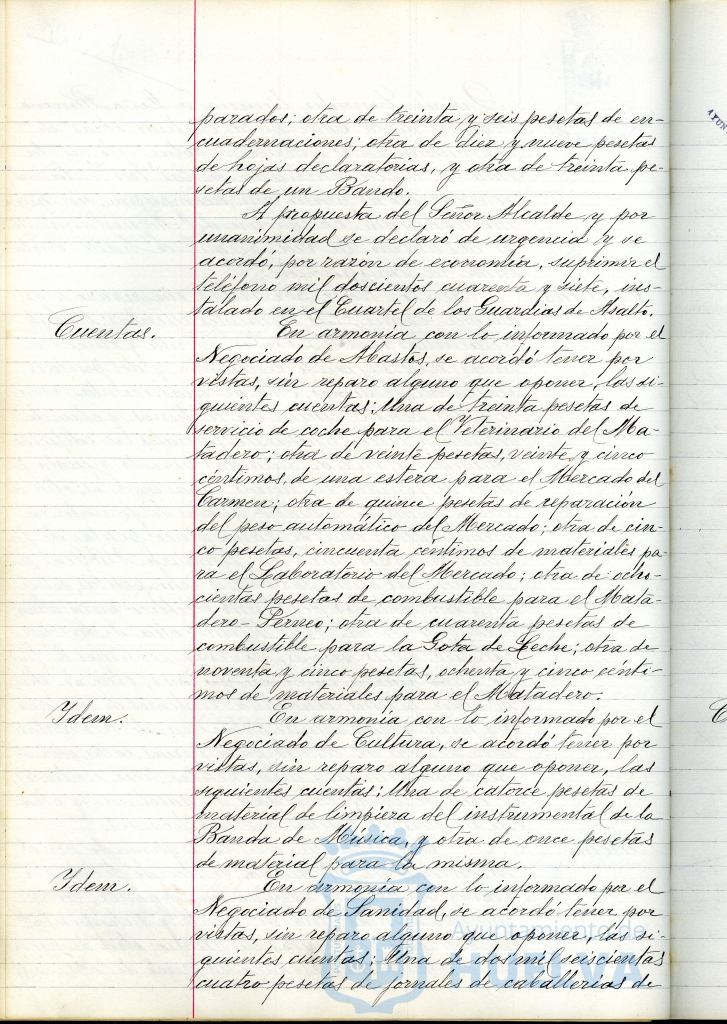 parados; otra de treinta y seis pesetas de en-
cuadernaciones; otra de diez y nueve pesetas
de hojas declaratorias, y otra de treinta pe-
setas de un Bando.
A propuesta del Señor Alcalde y por
unanimidad se declaró de urgencia y se
acordó, por razón de economía, suprimir el
teléfono mil doscientos cuarenta y siete, ins-
talado en el Cuartel de los Guardias de Asalto.
Cuentas. En armonía con lo informado por el
Negociado de Abastos, se acordó tener por
vistas, sin reparo alguno que oponer, las si-
guientes cuentas: Una de treinta pesetas de
servicio de coche para el Veterinario del Ma-
tadero; otra de veinte pesetas, veinte y cinco
céntimos, de una estera para el Mercado del
Carmen; otra de quince pesetas de reparación
del peso automático del Mercado; otra de cin-
co pesetas, cincuenta céntimos de materiales pa-
ra el Laboratorio del Mercado; otra de ocho-
cientas pesetas de combustible para el Mata-
dero-Perneo; otra de cuarenta pesetas de
combustible para la Gota de Leche; otra de
noventa y cinco pesetas, ochenta y cinco cénti-
mos de materiales para el Matadero.
Idem. En armonía con lo informado por el
Negociado de Cultura, se acordó tener por
vistas, sin reparo alguno que oponer, las
siguientes cuentas: Una de catorce pesetas de
material de limpieza del instrumental de la
Banda de Música, y otra de once pesetas
de material para la misma.
Idem. En armonía con lo informado por el
Negociado de Sanidad, se acordó tener por
vistas, sin reparo alguno que oponer, las si-
guientes cuentas: Una de dos mil seiscientas
cuatro pesetas de jornales de caballerías de
Ayuntamiento de
HUELVA